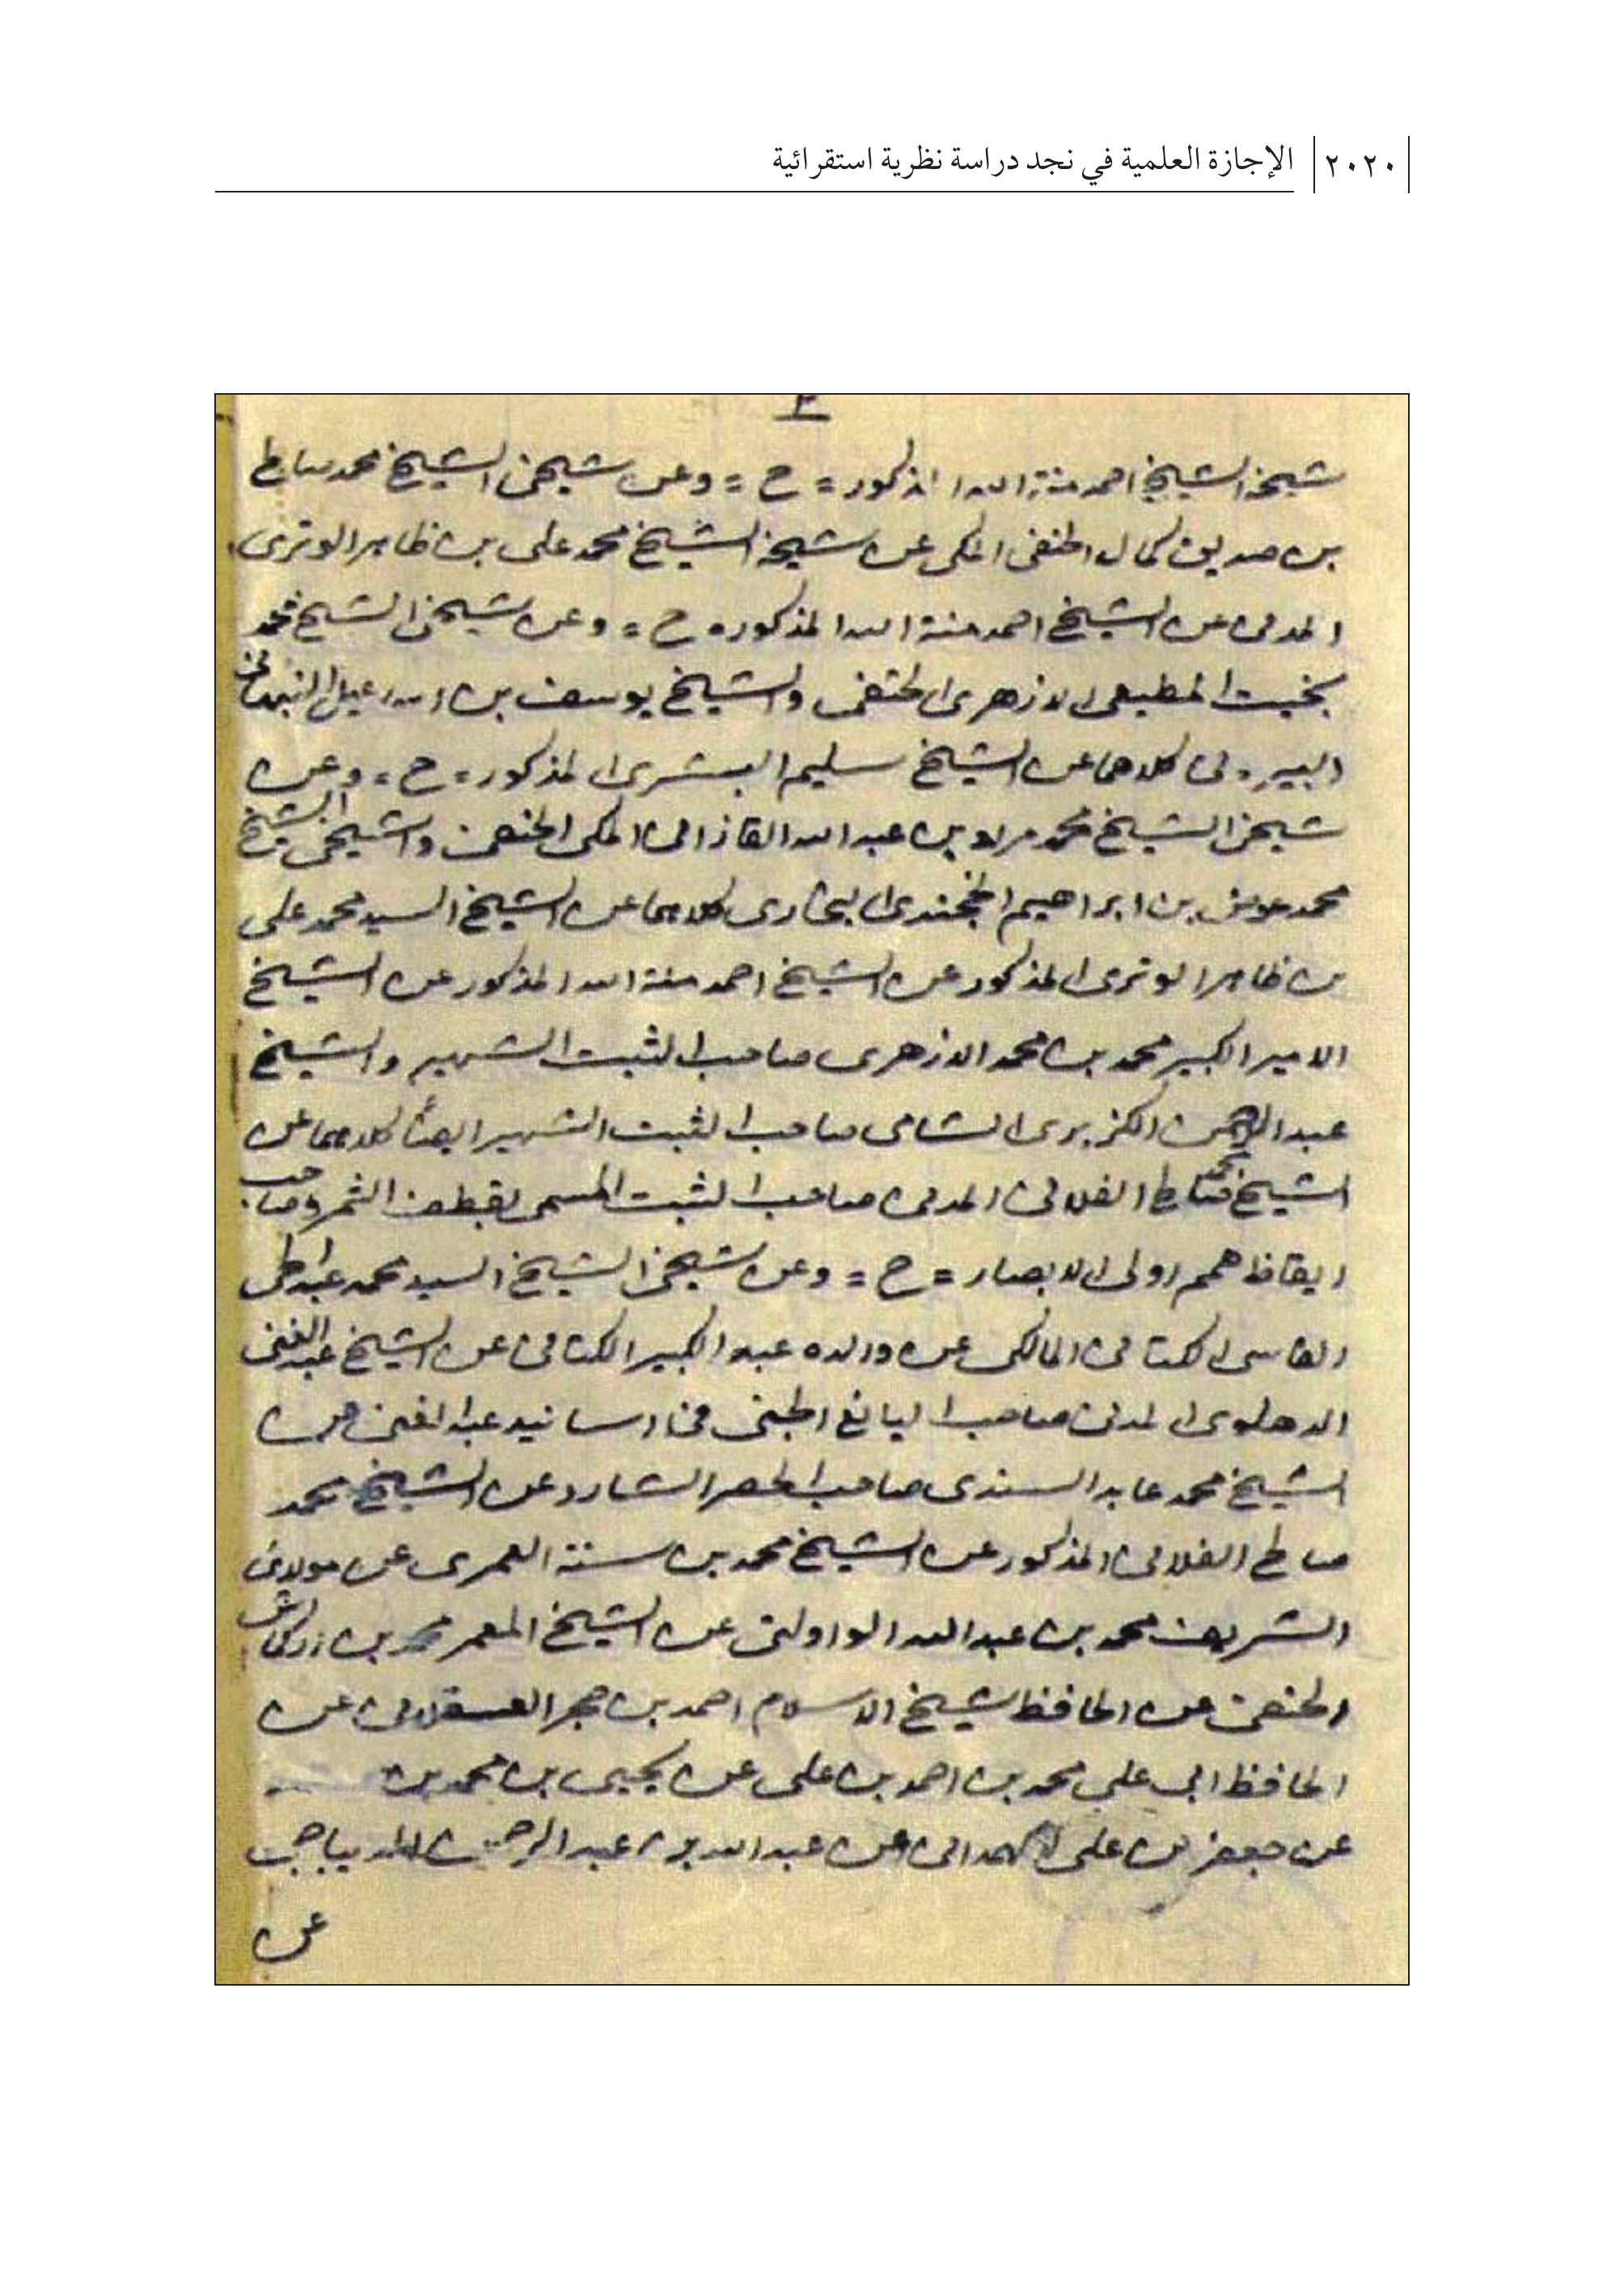 ٢٠٢٠ الإجازة العلمية في نجد دراسة نظرية استقرائية
٢
شيخه الشيخ احمد منة الله المذكور = ح = وعن شيخي الشيخ محمد صالح
بن صديق كمال الحنفي المكي عن شيخه الشيخ محمد علي بن ظاهر الوتري
المدني عن الشيخ احمد منة الله المذكور = ح = وعن شيخي الشيخ محمد
بخيت المطيعي الازهري الحنفي والشيخ يوسف بن اسماعيل النبهاني
البيروتي كلاهما عن الشيخ سليم البشري المذكور = ح = وعن
شيخي الشيخ محمد مراد بن عبد الله القازاني المكي الحنفي وشيخي الشيخ
محمد عوض بن ابراهيم الخجندي البخاري كلاهما عن الشيخ السيد محمد علي
بن ظاهر الوتري المذكور عن الشيخ احمد منة الله المذكور عن الشيخ
الامير الكبير محمد بن محمد الازهري صاحب الثبت الشهير والشيخ
عبد الرحمن الكزبري الشامي صاحب الثبت الشهير ايضاً كلاهما عن
الشيخ محمد صالح الفلاني المدني صاحب الثبت المسمى بقطف الثمر وصاحب
ايقاظ همم اولي الابصار = ح = وعن شيخي الشيخ السيد محمد عبد الحي
الفاسي الكتاني المالكي عن والده عبد الكبير الكتاني عن الشيخ عبد الغني
الدهلوي المدني صاحب اليانع الجني في اسانيد عبد الغني عن
الشيخ محمد عابد السندي صاحب الحصر الشارد عن الشيخ محمد
صالح الفلاني المذكور عن الشيخ محمد بن سنة العمري عن مولاي
الشريف محمد بن عبد الله الواولتي عن الشيخ المعمر محمد بن اركماش
الحنفي عن الحافظ شيخ الاسلام احمد بن حجر العسقلاني عن
الحافظ ابي علي محمد بن احمد بن علي عن يحيى بن محمد بن
عن جعفر بن علي الهمداني عن عبد الله بن عبد الرحمن الديباجي
عن